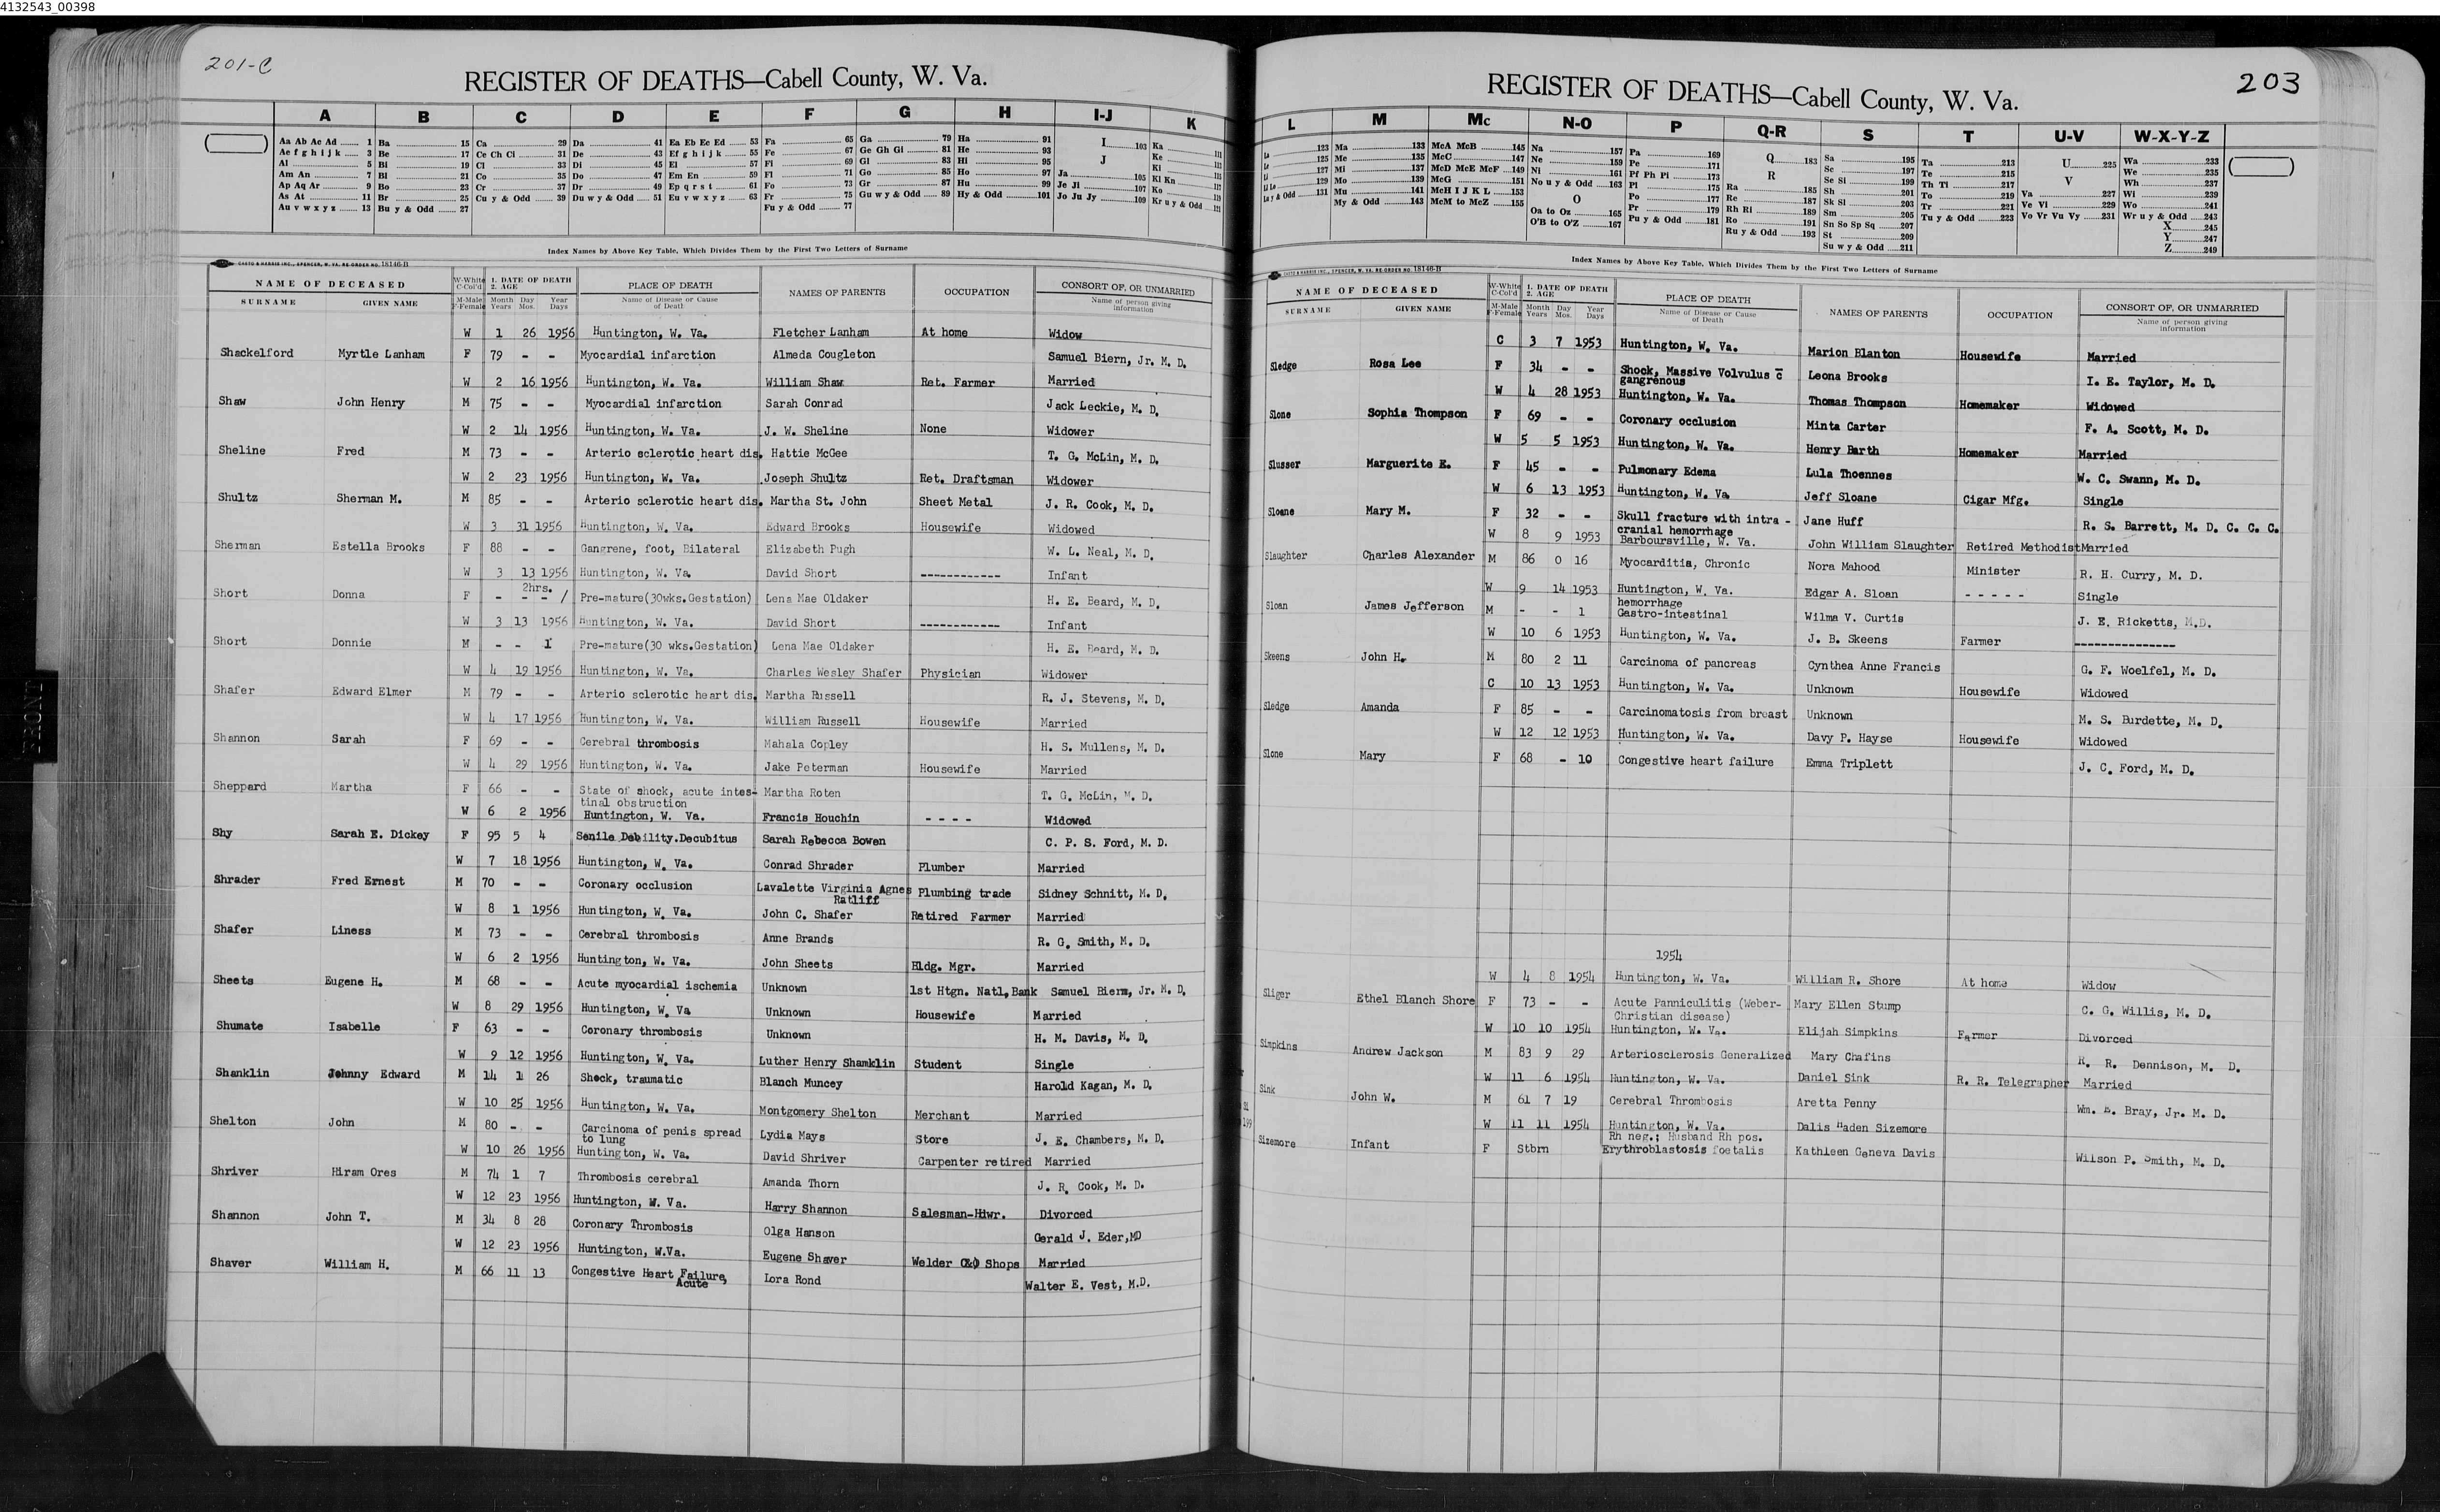 4132543_00398
201-C
REGISTER OF DEATHS—Cabell County, W. Va.
A B C D E F G H I-J K
Aa Ab Ac Ad 1 Ba 15 Ca 29 Da 41 Ea Eb Ec Ed 53 Fa 65 Ga 79 Ha 91 I 103 Ka
Ae f g h i j k 3 Be 17 Ce Ch Ci 31 De 43 Ef g h i j k 55 Fe 67 Ge Gh Gi 81 He 93 J Ke
Al 5 Bi 19 Cl 33 Di 45 El 57 Fi 69 Gl 83 Hi 95 Ki
Am An 7 Bl 21 Co 35 Do 47 Em En 59 Fl 71 Go 85 Ho 97 Ja 105 Kl Kn
Ap Aq Ar 9 Bo 23 Cr 37 Dr 49 Ep q r s t 61 Fo 73 Gr 87 Hu 99 Je Ji 107 Ko
As At 11 Br 25 Cu y & Odd 39 Du w y & Odd 51 Eu v w x y z 63 Fr 75 Gu w y & Odd 89 Hy & Odd 101 Jo Ju Jy 109 Kr u y & Odd
Au v w x y z 13 Bu y & Odd 27 Fu y & Odd 77
Index Names by Above Key Table, Which Divides Them by the First Two Letters of Surname
CASTO & HARRIS INC., SPENCER, W. VA. RE ORDER NO. 18146-B
NAME OF DECEASED W-White C-Col'd 1. DATE OF DEATH 2. AGE PLACE OF DEATH NAMES OF PARENTS OCCUPATION CONSORT OF, OR UNMARRIED
SURNAME GIVEN NAME M-Male F-Female Month Years Day Mos. Year Days Name of Disease or Cause of Death Name of person giving information
W 1 26 1956 Huntington, W. Va. Fletcher Lanham At home Widow
Shackelford Myrtle Lanham F 79 - - Myocardial infarction Almeda Cougleton Samuel Biern, Jr. M. D.
W 2 16 1956 Huntington, W. Va. William Shaw Ret. Farmer Married
Shaw John Henry M 75 - - Myocardial infarction Sarah Conrad Jack Leckie, M. D.
W 2 14 1956 Huntington, W. Va. J. W. Sheline None Widower
Sheline Fred M 73 - - Arterio sclerotic heart dis. Hattie McGee T. G. McLin, M. D.
W 2 23 1956 Huntington, W. Va. Joseph Shultz Ret. Draftsman Widower
Shultz Sherman M. M 85 - - Arterio sclerotic heart dis. Martha St. John Sheet Metal J. R. Cook, M. D.
W 3 31 1956 Huntington, W. Va. Edward Brooks Housewife Widowed
Sherman Estella Brooks F 88 - - Gangrene, foot, Bilateral Elizabeth Pugh W. L. Neal, M. D.
W 3 13 1956 Huntington, W. Va. David Short ------------ Infant
2hrs.
Short Donna F - - - / Pre-mature(30wks.Gestation) Lena Mae Oldaker H. E. Beard, M. D.
W 3 13 1956 Huntington, W. Va. David Short ------------ Infant
Short Donnie M - - 1 Pre-mature(30 wks.Gestation) Lena Mae Oldaker H. E. Beard, M. D.
W 4 19 1956 Huntington, W. Va. Charles Wesley Shafer Physician Widower
Shafer Edward Elmer M 79 - - Arterio sclerotic heart dis. Martha Russell R. J. Stevens, M. D.
W 4 17 1956 Huntington, W. Va. William Russell Housewife Married
Shannon Sarah F 69 - - Cerebral thrombosis Mahala Copley H. S. Mullens, M. D.
W 4 29 1956 Huntington, W. Va. Jake Peterman Housewife Married
Sheppard Martha F 66 - - State of shock, acute intes- Martha Roten T. G. McLin, M. D.
tinal obstruction
W 6 2 1956 Huntington, W. Va. Francis Houchin - - - - Widowed
Shy Sarah E. Dickey F 95 5 4 Senile Debility.Decubitus Sarah Rebecca Bowen C. P. S. Ford, M. D.
W 7 18 1956 Huntington, W. Va. Conrad Shrader Plumber Married
Shrader Fred Ernest M 70 - - Coronary occlusion Lavalette Virginia Agnes Plumbing trade Sidney Schnitt, M. D.
Ratliff
W 8 1 1956 Huntington, W. Va. John C. Shafer Retired Farmer Married
Shafer Liness M 73 - - Cerebral thrombosis Anne Brands R. G. Smith, M. D.
W 6 2 1956 Huntington, W. Va. John Sheets Bldg. Mgr. Married
Sheets Eugene H. M 68 - - Acute myocardial ischemia Unknown 1st Htgn. Natl.Bank Samuel Biern, Jr. M. D.
W 8 29 1956 Huntington, W. Va Unknown Housewife Married
Shumate Isabelle F 63 - - Coronary thrombosis Unknown H. M. Davis, M. D.
W 9 12 1956 Huntington, W. Va. Luther Henry Shamklin Student Single
Shanklin Johnny Edward M 14 1 26 Shock, traumatic Blanch Muncey Harold Kagan, M. D.
W 10 25 1956 Huntington, W. Va. Montgomery Shelton Merchant Married
Shelton John M 80 - - Carcinoma of penis spread Lydia Mays Store J. E. Chambers, M. D.
to lung
W 10 26 1956 Huntington, W. Va. David Shriver Carpenter retired Married
Shriver Hiram Ores M 74 1 7 Thrombosis cerebral Amanda Thorn J. R. Cook, M. D.
W 12 23 1956 Huntington, W. Va. Harry Shannon Salesman-Hiwr. Divorced
Shannon John T. M 34 8 28 Coronary Thrombosis Olga Hanson Gerald J. Eder,MD
W 12 23 1956 Huntington, W.Va. Eugene Shaver Welder C&O Shops Married
Shaver William H. M 66 11 13 Congestive Heart Failure, Lora Rond Walter E. Vest, M.D.
Acute
203
REGISTER OF DEATHS—Cabell County, W. Va.
L M Mc N-O P Q-R S T U-V W-X-Y-Z
La 123 Ma 133 McA McB 145 Na 157 Pa 169 Q 183 Sa 195 Ta 213 U 225 Wa 233
Le 125 Me 135 McC 147 Ne 159 Pe 171 R Se 197 Te 215 V We 235
Li 127 Mi 137 McD McE McF 149 Ni 161 Pf Ph Pi 173 Ra 185 Se Si 199 Th Ti 217 Va 227 Wh 237
129 Mo 139 McG 151 No u y & Odd 163 Pl 175 Re 187 Sh 201 To 219 Ve Vi 229 Wi 239
Lu y & Odd 131 Mu 141 McH I J K L 153 O Po 177 Rh Ri 189 Sk Sl 203 Tr 221 Vo Vr Vu Vy 231 Wo 241
My & Odd 143 McM to McZ 155 Oa to Oz 165 Pr 179 Ro 191 Sm 205 Tu y & Odd 223 Wr u y & Odd 243
O'B to O'Z 167 Pu y & Odd 181 Ru y & Odd 193 Sn So Sp Sq 207 X 245
St 209 Y 247
Su w y & Odd 211 Z 249
Index Names by Above Key Table, Which Divides Them by the First Two Letters of Surname
CASTO & HARRIS INC., SPENCER, W. VA. RE ORDER NO. 18146-B
NAME OF DECEASED W-White C-Col'd 1. DATE OF DEATH 2. AGE PLACE OF DEATH NAMES OF PARENTS OCCUPATION CONSORT OF, OR UNMARRIED
SURNAME GIVEN NAME M-Male F-Female Month Years Day Mos. Year Days Name of Disease or Cause of Death Name of person giving information
C 3 7 1953 Huntington, W. Va. Marion Blanton Housewife Married
Sledge Rosa Lee F 34 - - Shock, Massive Volvulus c̄ Leona Brooks I. E. Taylor, M. D.
gangrenous
W 4 28 1953 Huntington, W. Va. Thomas Thompson Homemaker Widowed
Slone Sophia Thompson F 69 - - Coronary occlusion Minta Carter F. A. Scott, M. D.
W 5 5 1953 Huntington, W. Va. Henry Barth Homemaker Married
Slusser Marguerite E. F 45 - - Pulmonary Edema Lula Thoennes W. C. Swann, M. D.
W 6 13 1953 Huntington, W. Va Jeff Sloane Cigar Mfg. Single
Sloane Mary M. F 32 - - Skull fracture with intra - Jane Huff R. S. Barrett, M. D. C. C. C.
cranial hemorrhage
W 8 9 1953 Barboursville, W. Va. John William Slaughter Retired Methodist Married
Slaughter Charles Alexander M 86 0 16 Myocarditia, Chronic Nora Mahood Minister R. H. Curry, M. D.
W 9 14 1953 Huntington, W. Va. Edgar A. Sloan - - - - - Single
hemorrhage
Sloan James Jefferson M - - 1 Gastro-intestinal Wilma V. Curtis J. E. Ricketts, M.D.
W 10 6 1953 Huntington, W. Va. J. B. Skeens Farmer ---------------
Skeens John H. M 80 2 11 Carcinoma of pancreas Cynthea Anne Francis G. F. Woelfel, M. D.
C 10 13 1953 Huntington, W. Va. Unknown Housewife Widowed
Sledge Amanda F 85 - - Carcinomatosis from breast Unknown M. S. Burdette, M. D.
W 12 12 1953 Huntington, W. Va. Davy P. Hayse Housewife Widowed
Slone Mary F 68 - 10 Congestive heart failure Emma Triplett J. C. Ford, M. D.
1954
W 4 8 1954 Huntington, W. Va. William R. Shore At home Widow
Sliger Ethel Blanch Shore F 73 - - Acute Panniculitis (Weber- Mary Ellen Stump C. G. Willis, M. D.
Christian disease)
W 10 10 1954 Huntington, W. Va. Elijah Simpkins Farmer Divorced
Simpkins Andrew Jackson M 83 9 29 Arteriosclerosis Generalized Mary Chafins R. R. Dennison, M. D.
W 11 6 1954 Huntington, W. Va. Daniel Sink R. R. Telegrapher Married
Sink John W. M 61 7 19 Cerebral Thrombosis Aretta Penny Wm. E. Bray, Jr. M. D.
Si 199
W 11 11 1954 Huntington, W. Va. Dalis Haden Sizemore
Rh neg.; Husband Rh pos.
Sizemore Infant F Stbrn Erythroblastosis foetalis Kathleen Geneva Davis Wilson P. Smith, M. D.